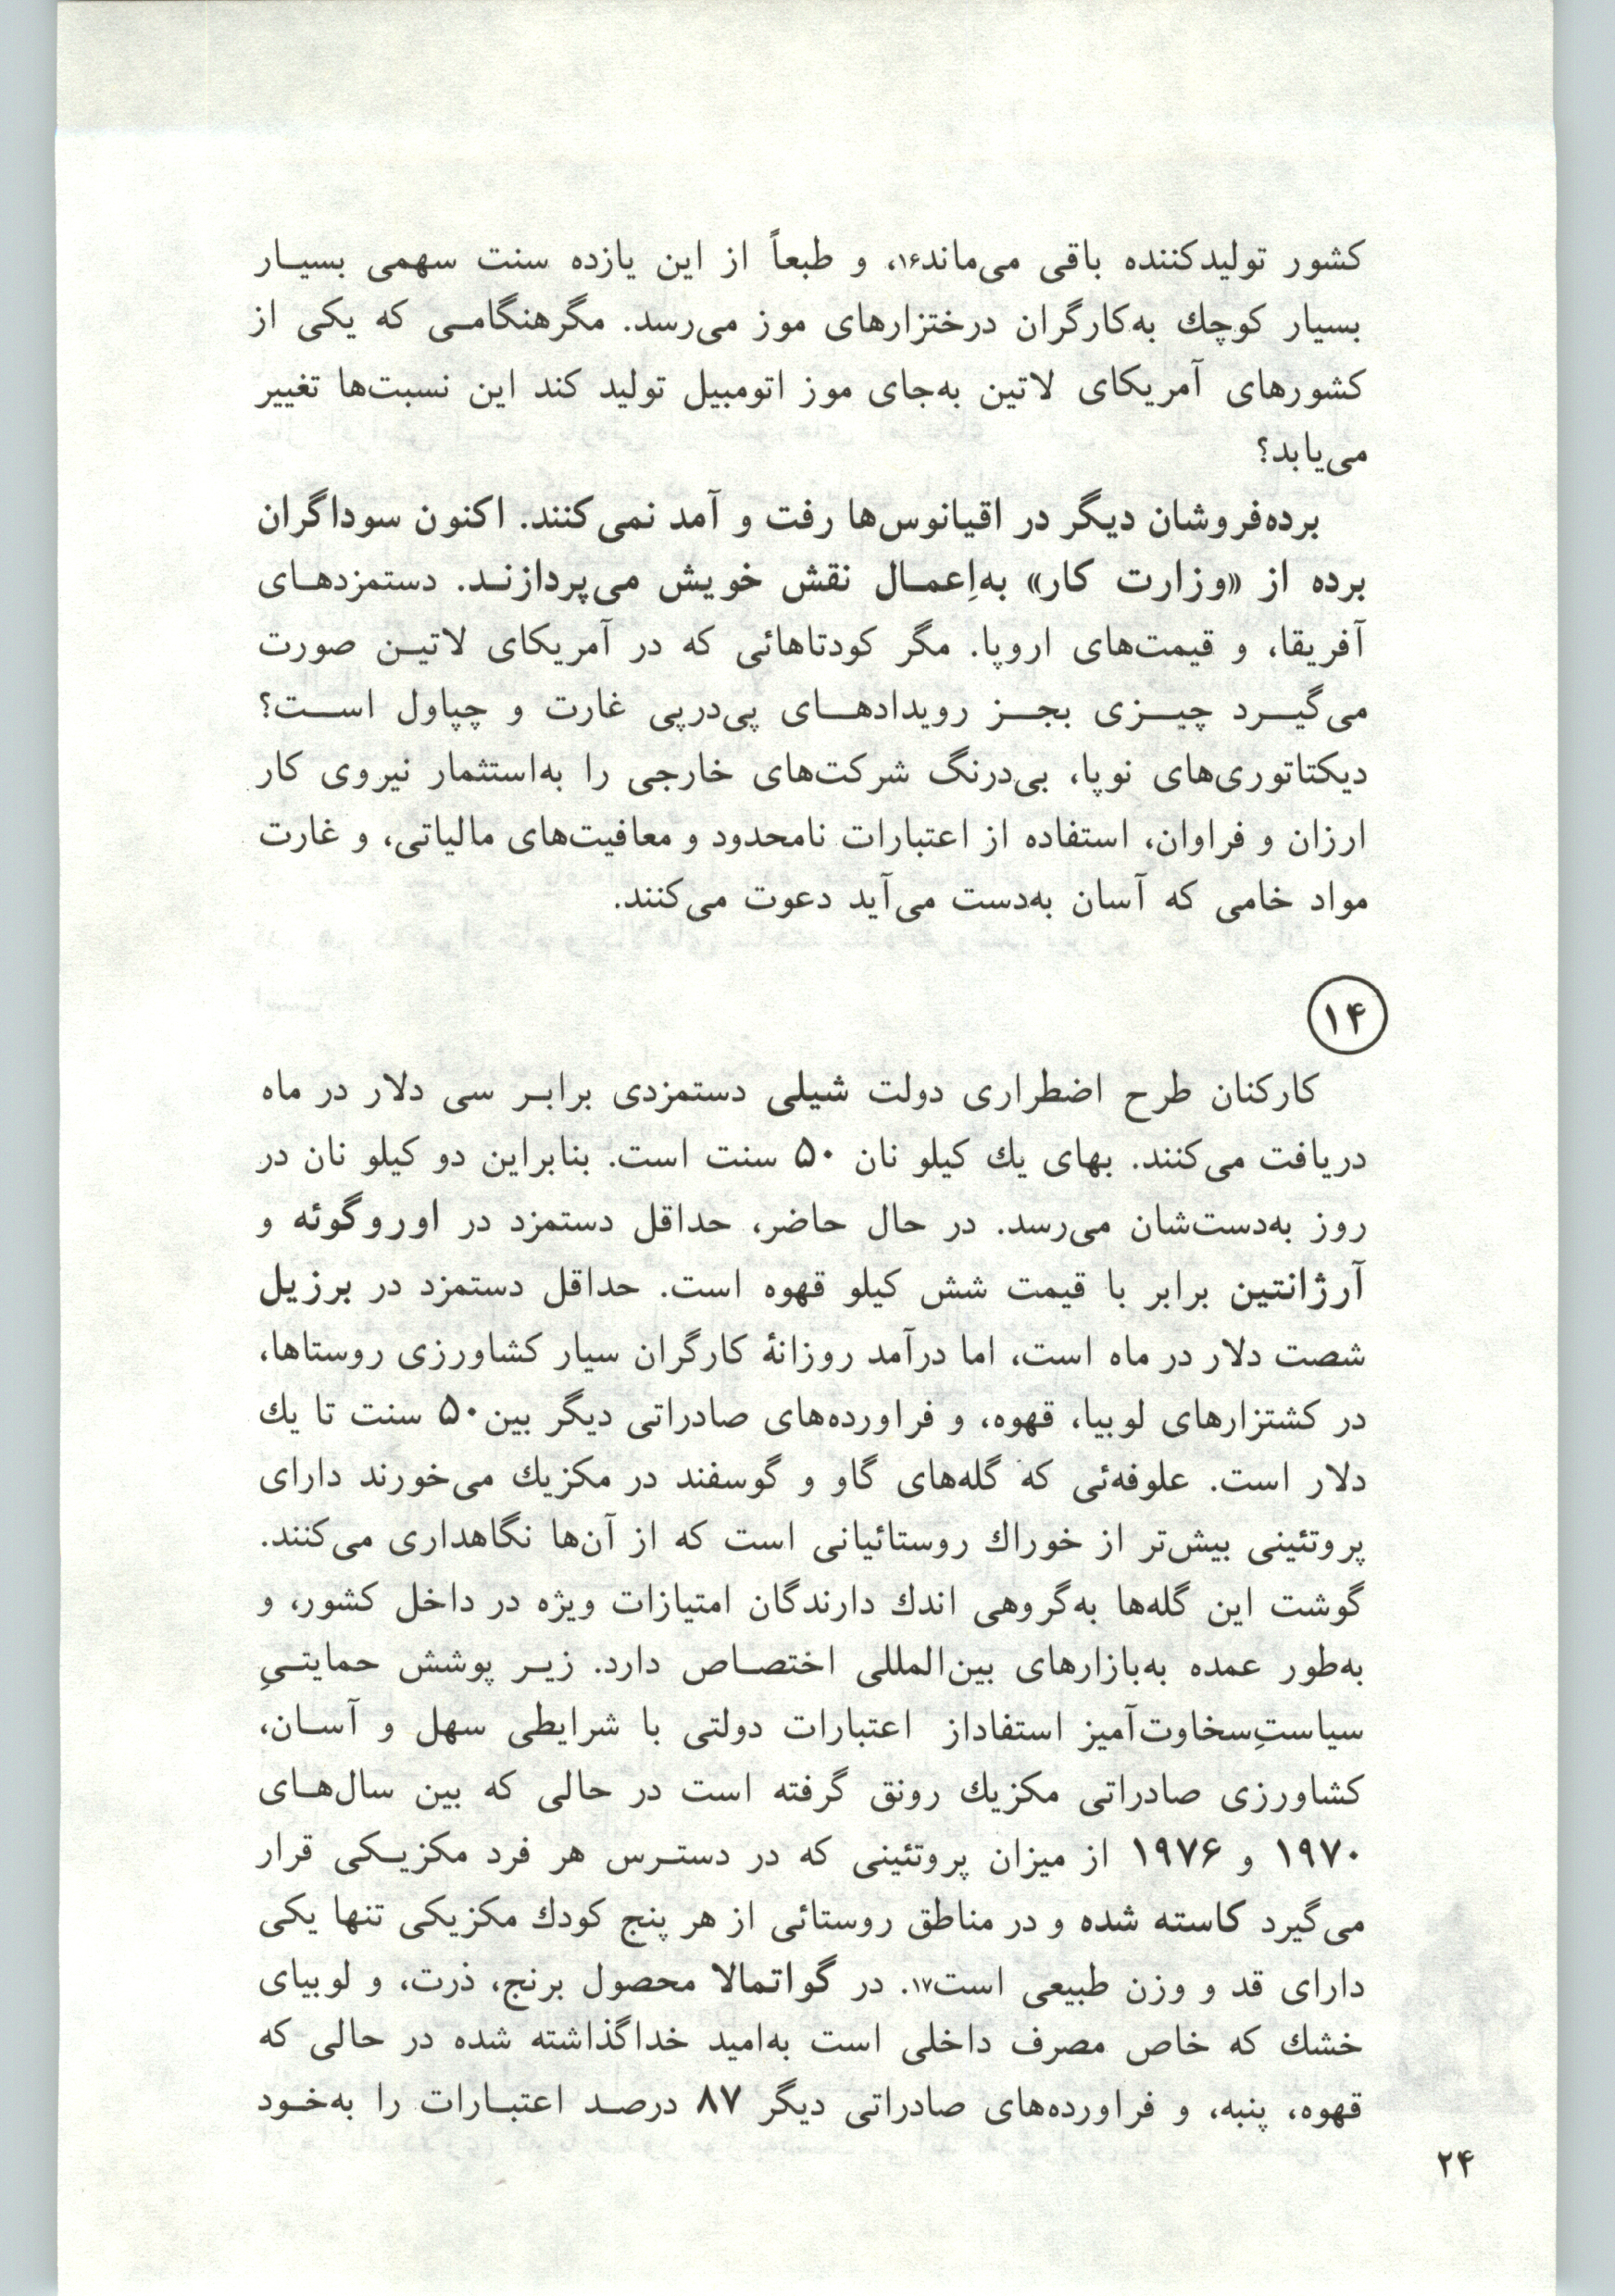 کشور تولیدکننده باقی می‌ماند۱۶، و طبعاً از این یازده سنت سهمی بسیار
بسیار کوچك به‌کارگران درختزارهای موز می‌رسد. مگرهنگامی که یکی از
کشورهای آمریکای لاتین به‌جای موز اتومبیل تولید کند این نسبت‌ها تغییر
می‌یابد؟
برده‌فروشان دیگر در اقیانوس‌ها رفت و آمد نمی‌کنند. اکنون سوداگران
برده از «وزارت کار» به‌اِعمال نقش خویش می‌پردازند. دستمزدهای
آفریقا، و قیمت‌های اروپا. مگر کودتاهائی که در آمریکای لاتین صورت
می‌گیرد چیزی بجز رویدادهای پی‌درپی غارت و چپاول است؟
دیکتاتوری‌های نوپا، بی‌درنگ شرکت‌های خارجی را به‌استثمار نیروی کار
ارزان و فراوان، استفاده از اعتبارات نامحدود و معافیت‌های مالیاتی، و غارت
مواد خامی که آسان به‌دست می‌آید دعوت می‌کنند.
۱۴
کارکنان طرح اضطراری دولت شیلی دستمزدی برابر سی دلار در ماه
دریافت می‌کنند. بهای یك کیلو نان ۵۰ سنت است. بنابراین دو کیلو نان در
روز به‌دست‌شان می‌رسد. در حال حاضر، حداقل دستمزد در اوروگوئه و
آرژانتین برابر با قیمت شش کیلو قهوه است. حداقل دستمزد در برزیل
شصت دلار در ماه است، اما درآمد روزانهٔ کارگران سیار کشاورزی روستاها،
در کشتزارهای لوبیا، قهوه، و فراورده‌های صادراتی دیگر بین۵۰ سنت تا یك
دلار است. علوفه‌ئی که گله‌های گاو و گوسفند در مکزیك می‌خورند دارای
پروتئینی بیش‌تر از خوراك روستائیانی است که از آن‌ها نگاهداری می‌کنند.
گوشت این گله‌ها به‌گروهی اندك دارندگان امتیازات ویژه در داخل کشور، و
به‌طور عمده به‌بازارهای بین‌المللی اختصاص دارد. زیر پوشش حمایتیِ
سیاستِ‌سخاوت‌آمیز استفاداز اعتبارات دولتی با شرایطی سهل و آسان،
کشاورزی صادراتی مکزیك رونق گرفته است در حالی که بین سال‌های
۱۹۷۰ و ۱۹۷۶ از میزان پروتئینی که در دسترس هر فرد مکزیکی قرار
می‌گیرد کاسته شده و در مناطق روستائی از هر پنج کودك مکزیکی تنها یکی
دارای قد و وزن طبیعی است۱۷. در گواتمالا محصول برنج، ذرت، و لوبیای
خشك که خاص مصرف داخلی است به‌امید خداگذاشته شده در حالی که
قهوه، پنبه، و فراورده‌های صادراتی دیگر ۸۷ درصد اعتبارات را به‌خود
۲۴